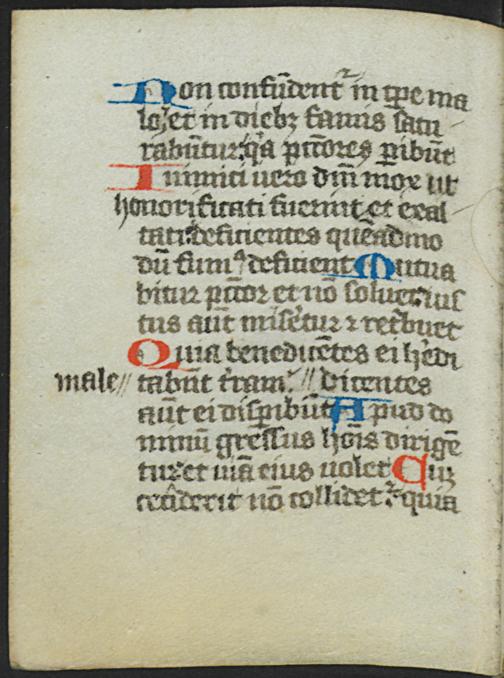 Non confūdent᷑ in tp̄e ma
lo: et in dieb; famis satu
rabūtur: q̄a pctōres ꝑibūt
Inimici uero dn̄i mox ut
honorificati fuerint et exal
tati: deficientes quēadmo
dū fum⁹ deficient Mutua
bitur pctōr et nō soluet: ius
tus aūt miseretur ⁊ retbuet
Quia benedicētes ei hēdi
male// tabūt tram: // dicentes
aūt ei disꝑibūt Apud do
minū gressus hoīs dirigē
tur: et uiā eius uolet Cū
ceciderit nō collidet᷑: quia